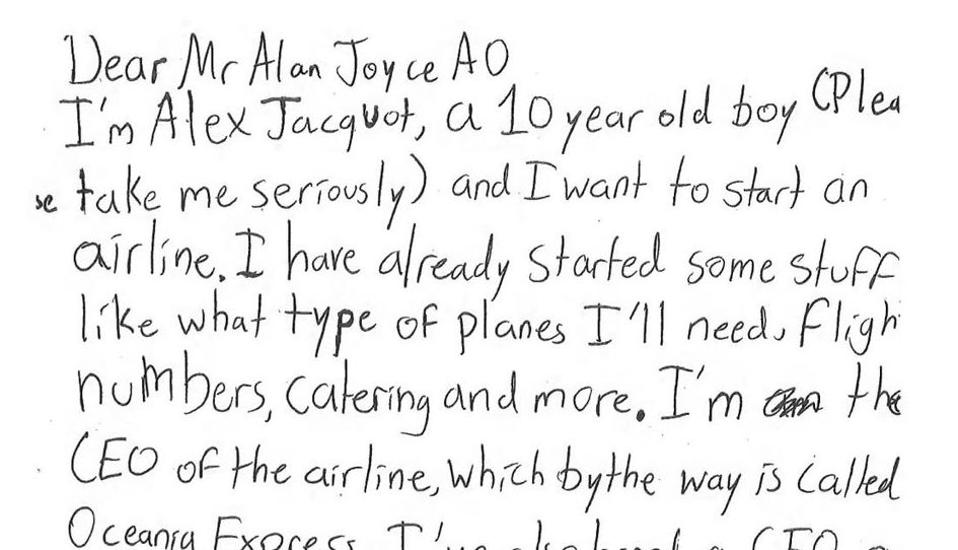 Dear Mr Alan Joyce AO
I'm Alex Jacquot, a 10 year old boy (Plea
se take me seriously) and I want to start an
airline. I have already started some stuff
like what type of planes I'll need, fligh
numbers, catering and more. I'm the
CEO of the airline, which by the way is called
Oceania Express. I've also a CFO